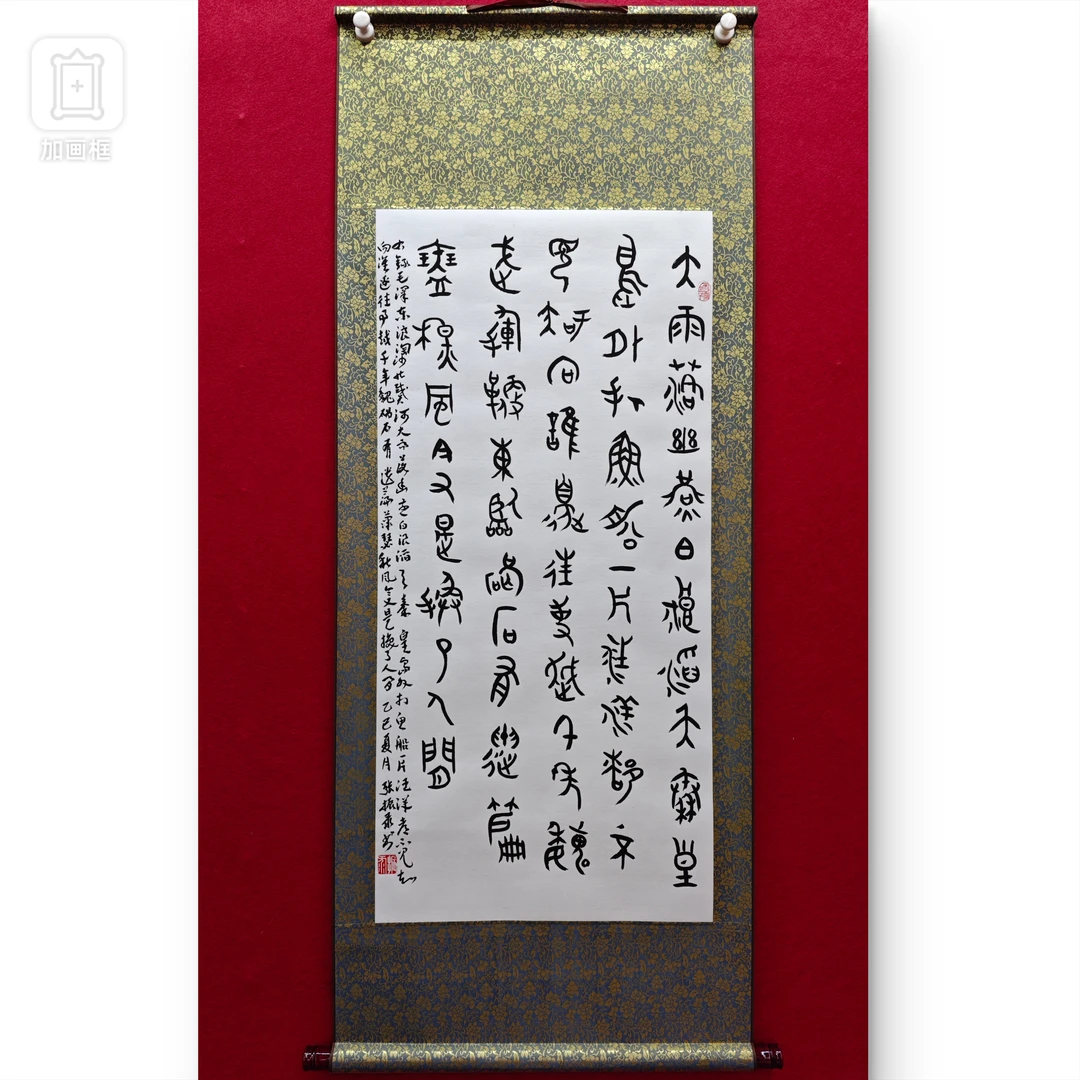 加画框
大雨落幽燕白浪滔天秦皇
島外打魚船一片汪洋都不
見知向誰邊往事越千年魏
武揮鞭東臨碣石有遺篇
瑟秋風今又是換了人間
録毛泽东浪淘沙北戴河大雨落幽燕白浪滔天秦皇岛外打鱼船一片汪洋都不见知
向谁边往事越千年魏碣石有遗篇萧瑟秋风今又是换了人间乙巳夏月张振书